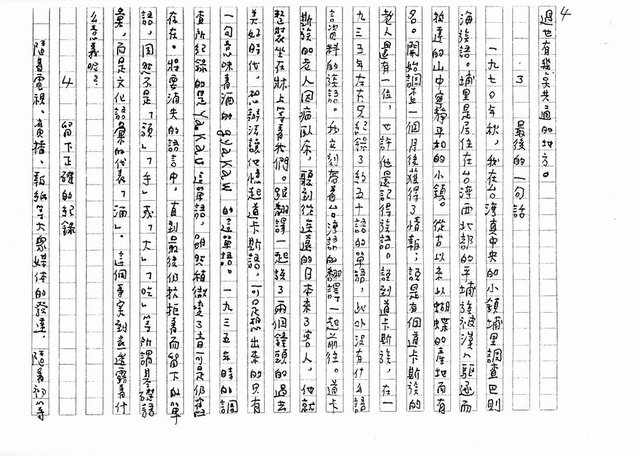 4
過也有幾項共通的地方。
3 最後的一句話
一九七〇年秋，我在台灣真中央的小鎮埔里調查巴則
海族語。埔里是居住在台灣西北部的平埔族被漢人驅逐而
牧達的山中寧靜平和的小鎮。從古以來以蝴蝶的產地而有
名。開始調查一個月後獲得了情報；說是有個道卡斯族的
老人還有一位，也許他還記得族語。說到道卡斯族，在一
九三五年左右只紀錄了約五十語的單語，此外沒有什麼語
言資料的族語。我立刻帶著台灣話的翻譯一起前往。道卡
斯族的老人因病臥床，聽到從遙遠的日本來了客人，他就
整裝坐在牀上等著我們。跟翻譯一起談了兩個鐘頭的過去
美好時代，想辦法讓他憶起道卡斯語。可是想出來的只有
一句意味着酒的 gyakaw 的這單語。一九三五年時的調
查所紀錄的是 yakaw 這單語，雖然稍微變了音可是仍舊
存在。將要消失的語言中，直到最後仍抗拒着而留下的單
語，固然不是「頭」「手」或「大」「吃」等所謂基礎語
彙，而是文化語彙的代表「酒」。這個事實到底透露着什
么意義呢？
4 留下正確的紀錄
隨着電視、廣播、報紙等大眾媒体的發達，隨着初等